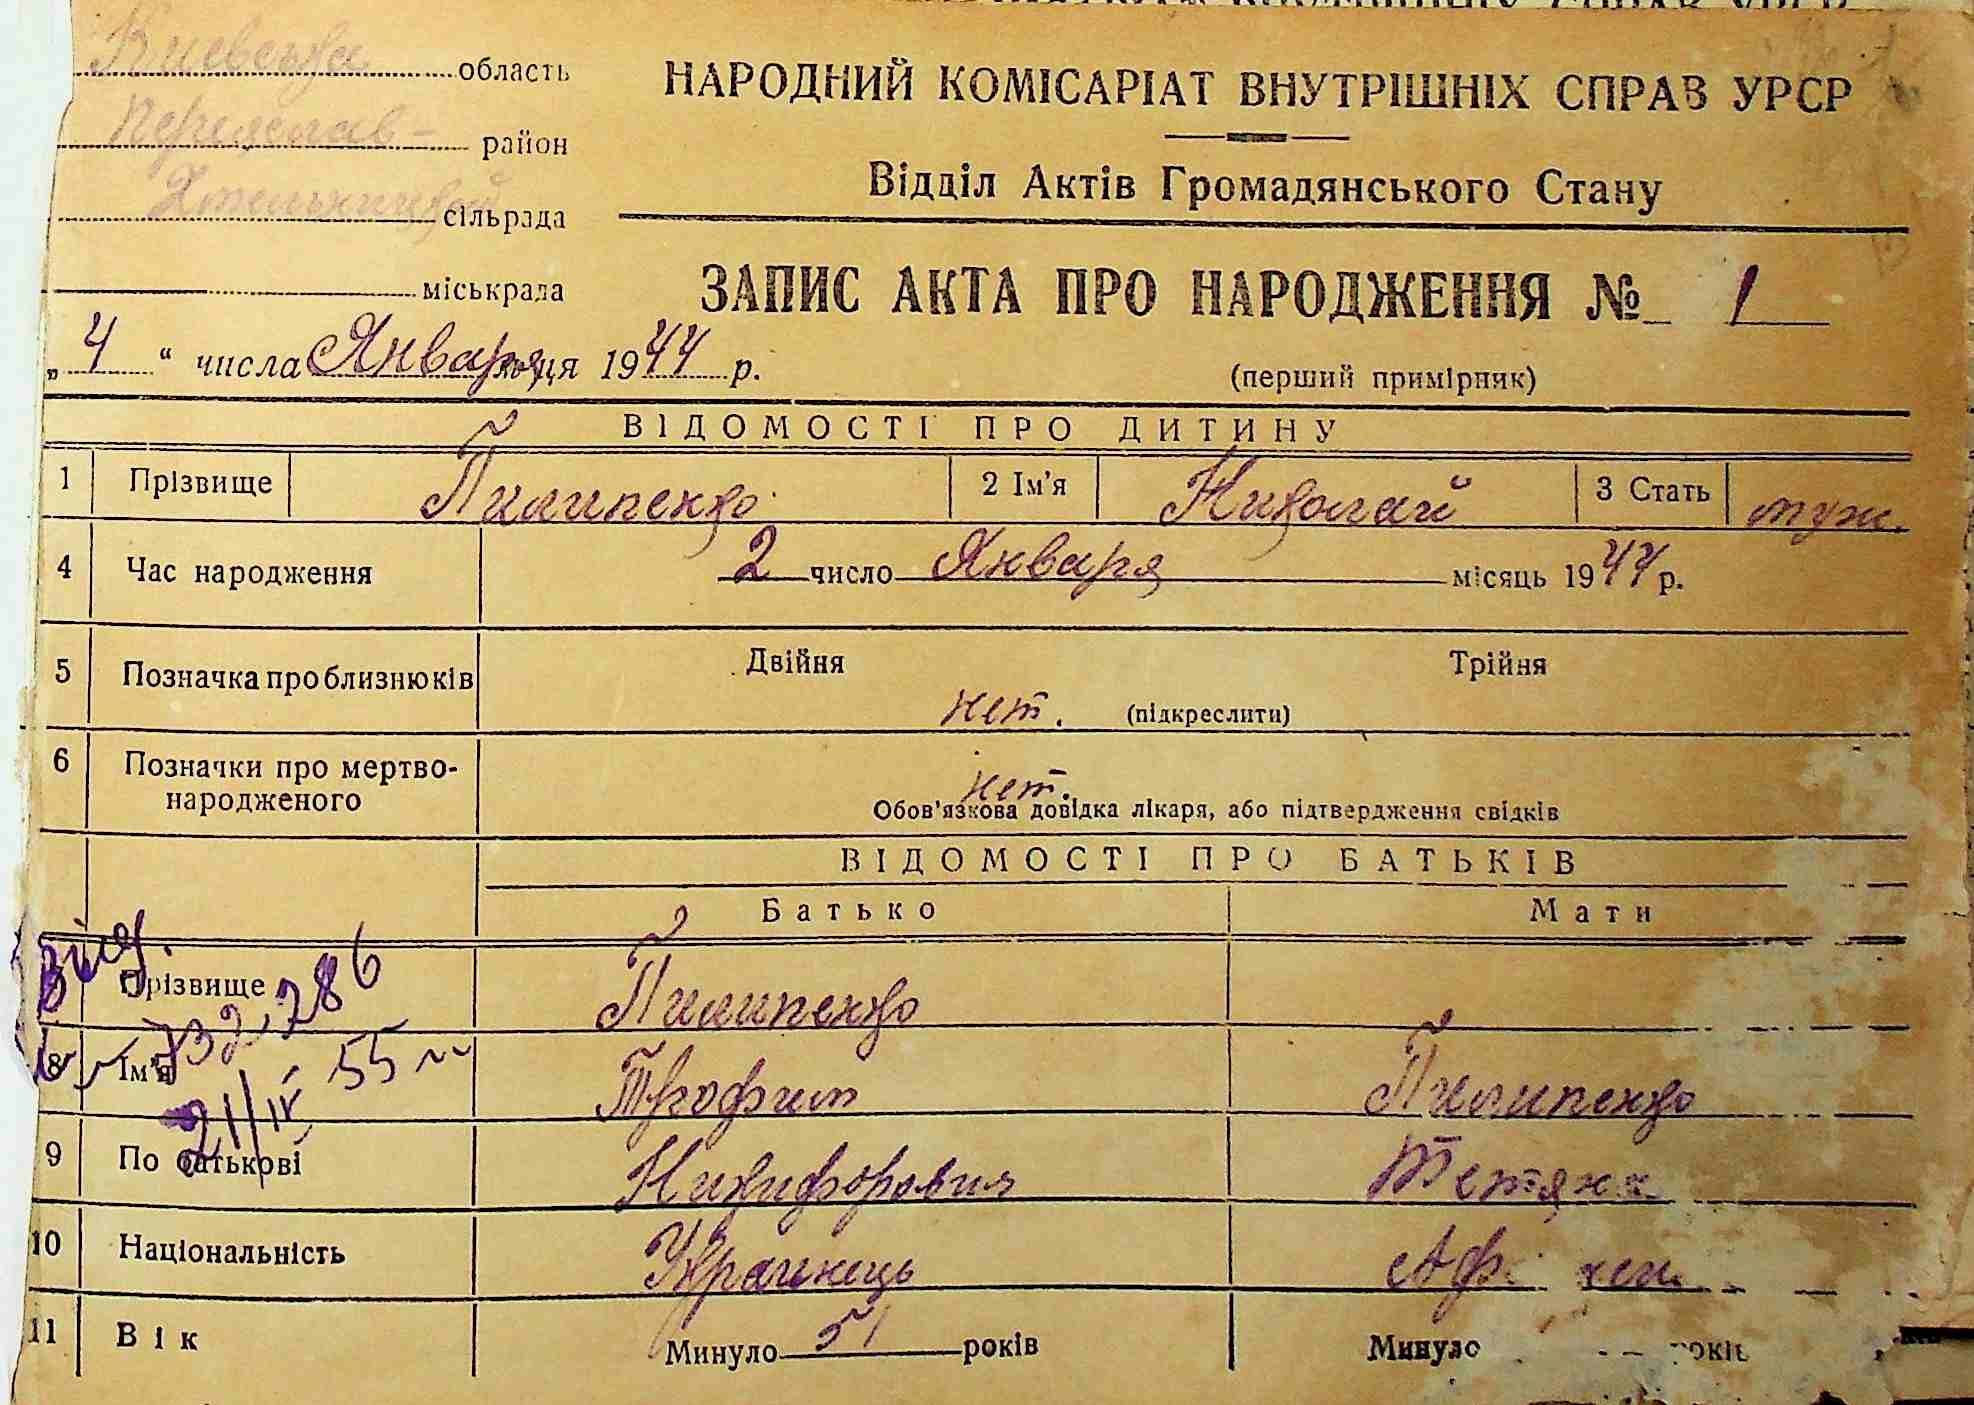 Киевська область
Переяслав- район
Хмельницкой сільрада
міськрада
НАРОДНИЙ КОМІСАРІАТ ВНУТРІШНІХ СПРАВ УРСР
Відділ Актів Громадянського Стану
ЗАПИС АКТА ПРО НАРОДЖЕННЯ № 1
„4“ числа Января 1944 р.
(перший примірник)
ВІДОМОСТІ ПРО ДИТИНУ
1 Прізвище Пилипенко 2 Ім'я Николай 3 Стать муж.
4 Час народження 2 число Января місяць 1944 р.
5 Позначка про близнюків Двійня Трійня
нет. (підкреслити)
6 Позначки про мертво-
народженого
нет.
Обов'язкова довідка лікаря, або підтвердження свідків
ВІДОМОСТІ ПРО БАТЬКІВ
Батько Мати
Прізвище Пилипенко
8 Ім'я Трофим Пилипенко
9 По батькові Никифорович Тетяна
10 Національність Украинець
11 Вік Минуло 51 років Минуло
732,286
21/IX 55